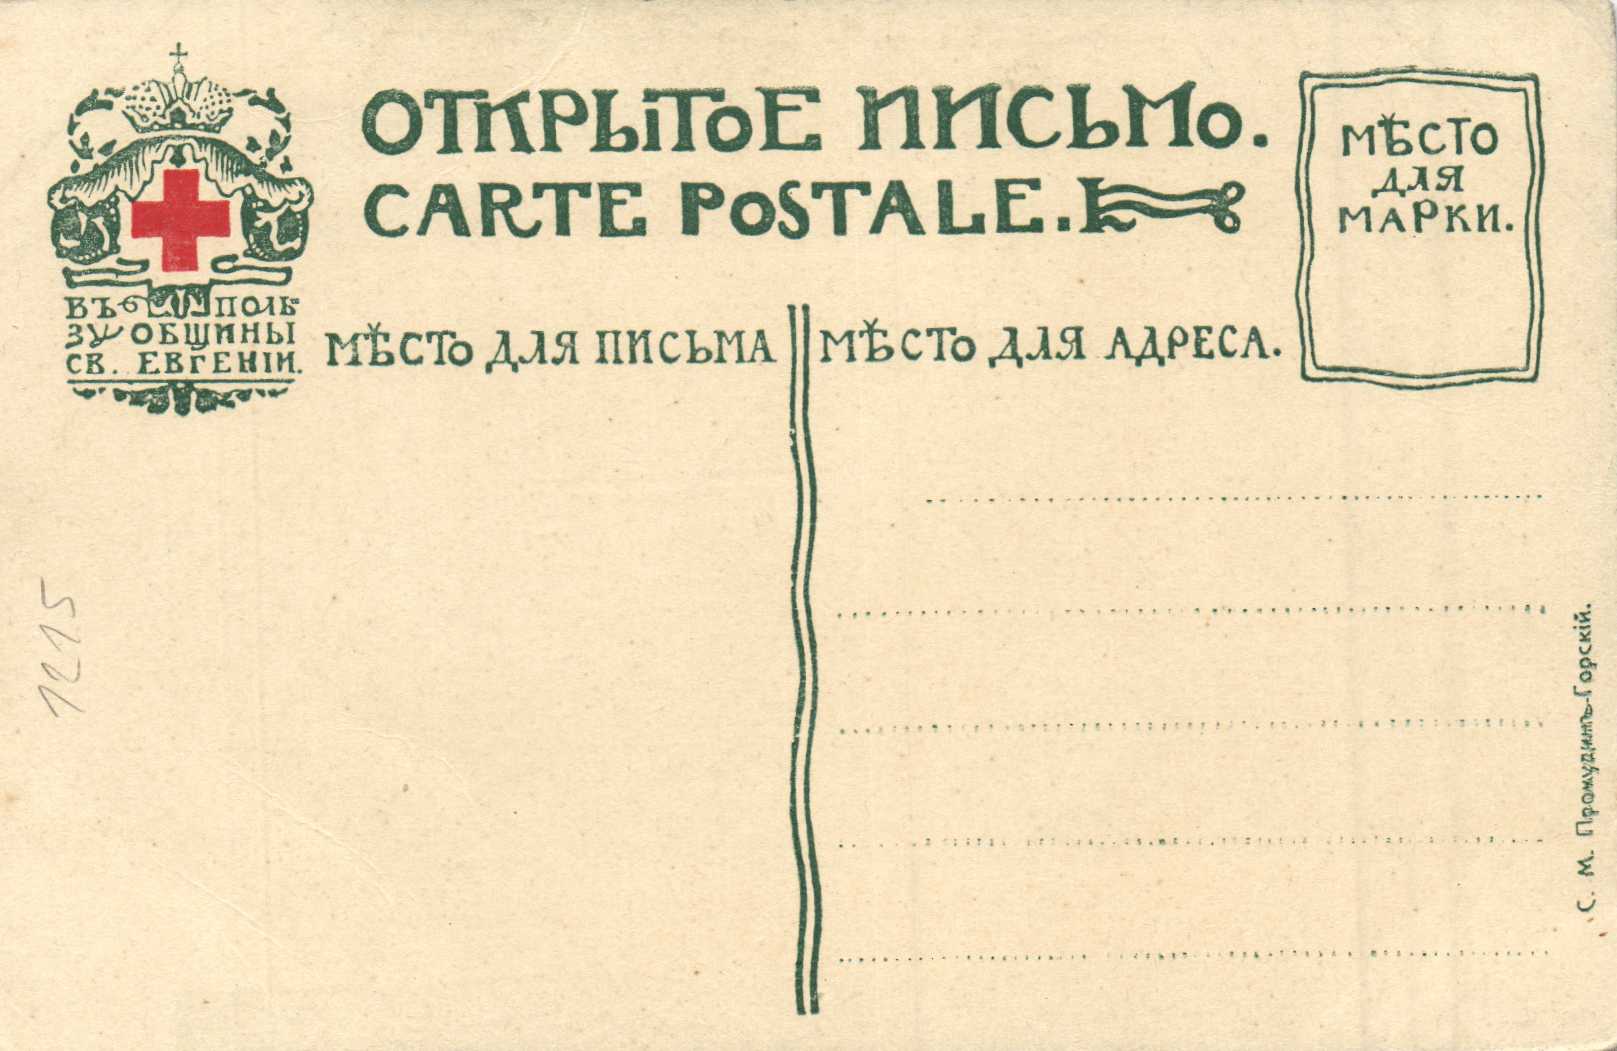 ОТКРЫТОЕ ПИСЬМО.
CARTE POSTALE.
МѢСТО
ДЛЯ
МАРКИ.
ВЪ ПОЛЬ-
ЗУ ОБЩИНЫ
СВ. ЕВГЕНІИ.
МѢСТО ДЛЯ ПИСЬМА
МѢСТО ДЛЯ АДРЕСА.
1215
С. М. Прокудинъ-Горскій.